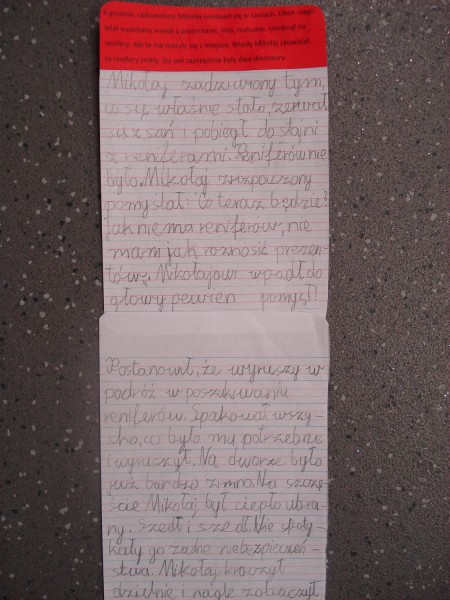 6 grudnia, zadowolony Mikołaj usadowił się w saniach. Obok niego
leżał wypchany worek z prezentami. Wio, maluśkie! cmoknął na
renifery. Ale te nie ruszyły się z miejsca. Wtedy Mikołaj zauważył,
że renifery znikły. Do sań zaprzężone były dwa dinozaury.
Mikołaj zadziwiony tym,
co się właśnie stało, zerwał
się z sań i pobiegł do stajni
z reniferami. Reniferów nie
było. Mikołaj zrozpaczony
pomyślał: Co teraz będzie?
Jak niema reniferów, nie
mam jak roznosić prezen-
tów". Mikołajowi wpadł do
głowy pewien pomysł!
Postanowił, że wyruszy w
podróż w poszukiwaniu
reniferów. Spakował wszy-
sko, co było mu potrzebne
i wyruszył. Na dworze było
już bardzo zimno. Na szczę-
ście Mikołaj był ciepło ubra-
ny. Szedł i szedł. Nie spoty-
kały go żadne niebezpieczeń-
stwa. Mikołaj kroczył
dzielnie i nagle zobaczył